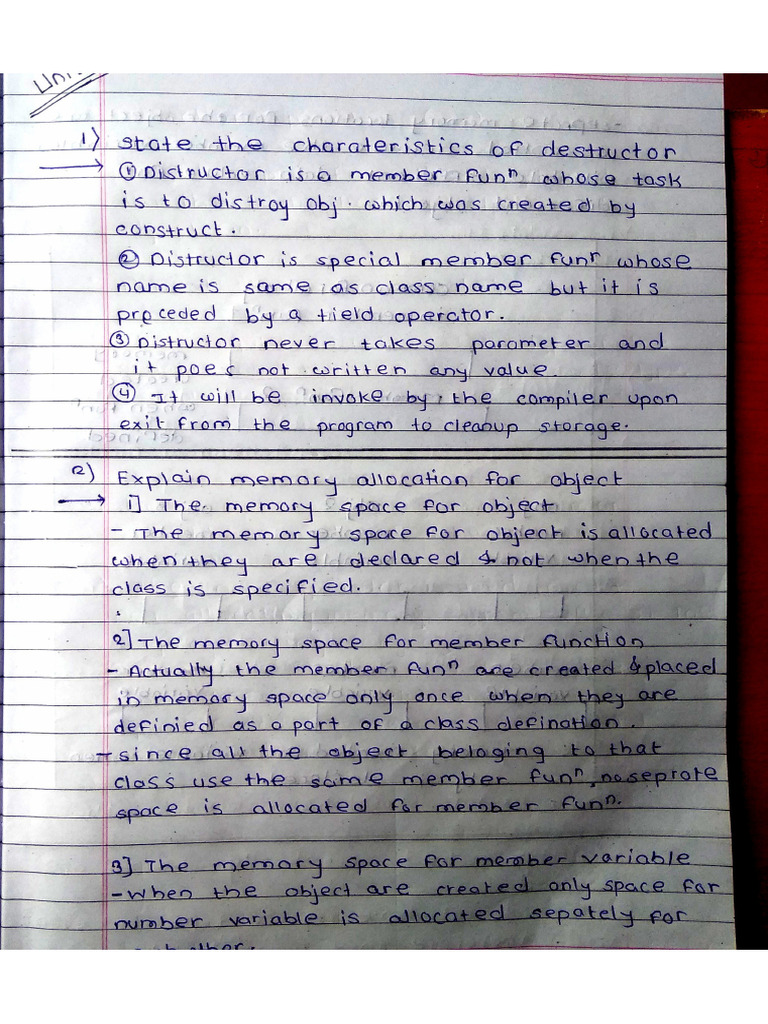 Uni
1) state the charateristics of destructor
→ ① Distructor is a member funⁿ whose task
is to distroy obj. which was created by
construct.
② Distructor is special member funⁿ whose
name is same as class name but it is
preceded by a tield operator.
③ Distructor never takes parameter and
it poes not written any value.
④ It will be invoke by the compiler upon
exit from the program to cleanup storage.
2) Explain memory allocation for object
→ 1] The memory space for object
- The memory space for object is allocated
when they are declared & not when the
class is specified.
2] The memory space for member function
- Actually the member funⁿ are created & placed
in memory space only once when they are
definied as a part of a class defination.
- since all the object belaging to that
class use the same member funⁿ, no seprote
space is allocated for member funⁿ.
3] The memory space for member variable
- when the object are created only space for
number variable is allocated sepately for
each other.